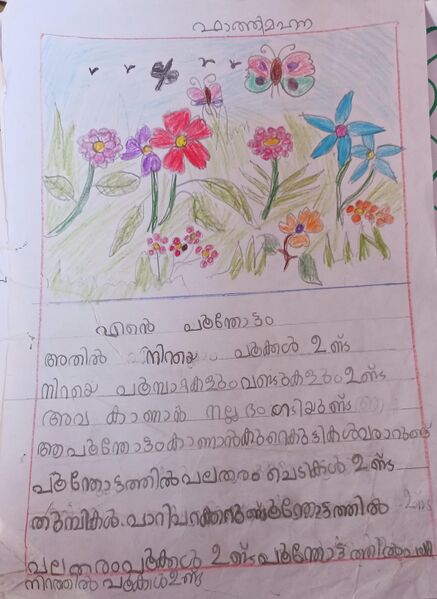 ഫാത്തിമഹന്ന
എന്റെ പൂന്തോട്ടം
അതിൽ നിറയെ പൂക്കൾ ഉണ്ട്
നിറയെ പൂമ്പാറ്റകളും വണ്ടുകളും ഉണ്ട്
അവ കാണാൻ നല്ല ഭംഗിയുണ്ട്
ആ പൂന്തോട്ടം കാണാൻ കുറെ കുട്ടികൾ വരാറുണ്ട്
പൂന്തോട്ടത്തിൽ പലതരം ചെടികൾ ഉണ്ട്
തുമ്പികൾ പാറിപറക്കുന്നുണ്ട് പൂന്തോട്ടത്തിൽ
പലതരം പൂക്കൾ ഉണ്ട് പൂന്തോട്ടത്തിൽ പല
നിറത്തിൽ പൂക്കൾ ഉണ്ട്